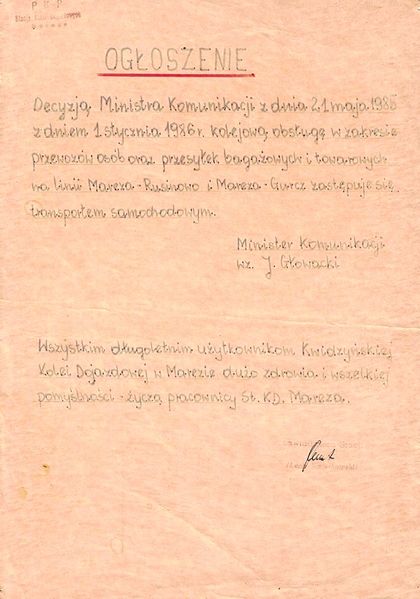 P K P
OGŁOSZENIE
Decyzją Ministra Komunikacji z dnia 21 maja 1985
z dniem 1 stycznia 1986 r. kolejową obsługę w zakresie
przewozów osób oraz przesyłek bagażowych i towarowych
na linii Mareza - Rusinowo i Mareza - Gurcz zastępuje się
transportem samochodowym.
Minister Komunikacji
wz. J. Głowacki
Wszystkim długoletnim użytkownikom Kwidzyńskiej
Kolei Dojazdowej w Marezie dużo zdrowia i wszelkiej
pomyślności - życzą pracownicy St. K.D. Mareza.